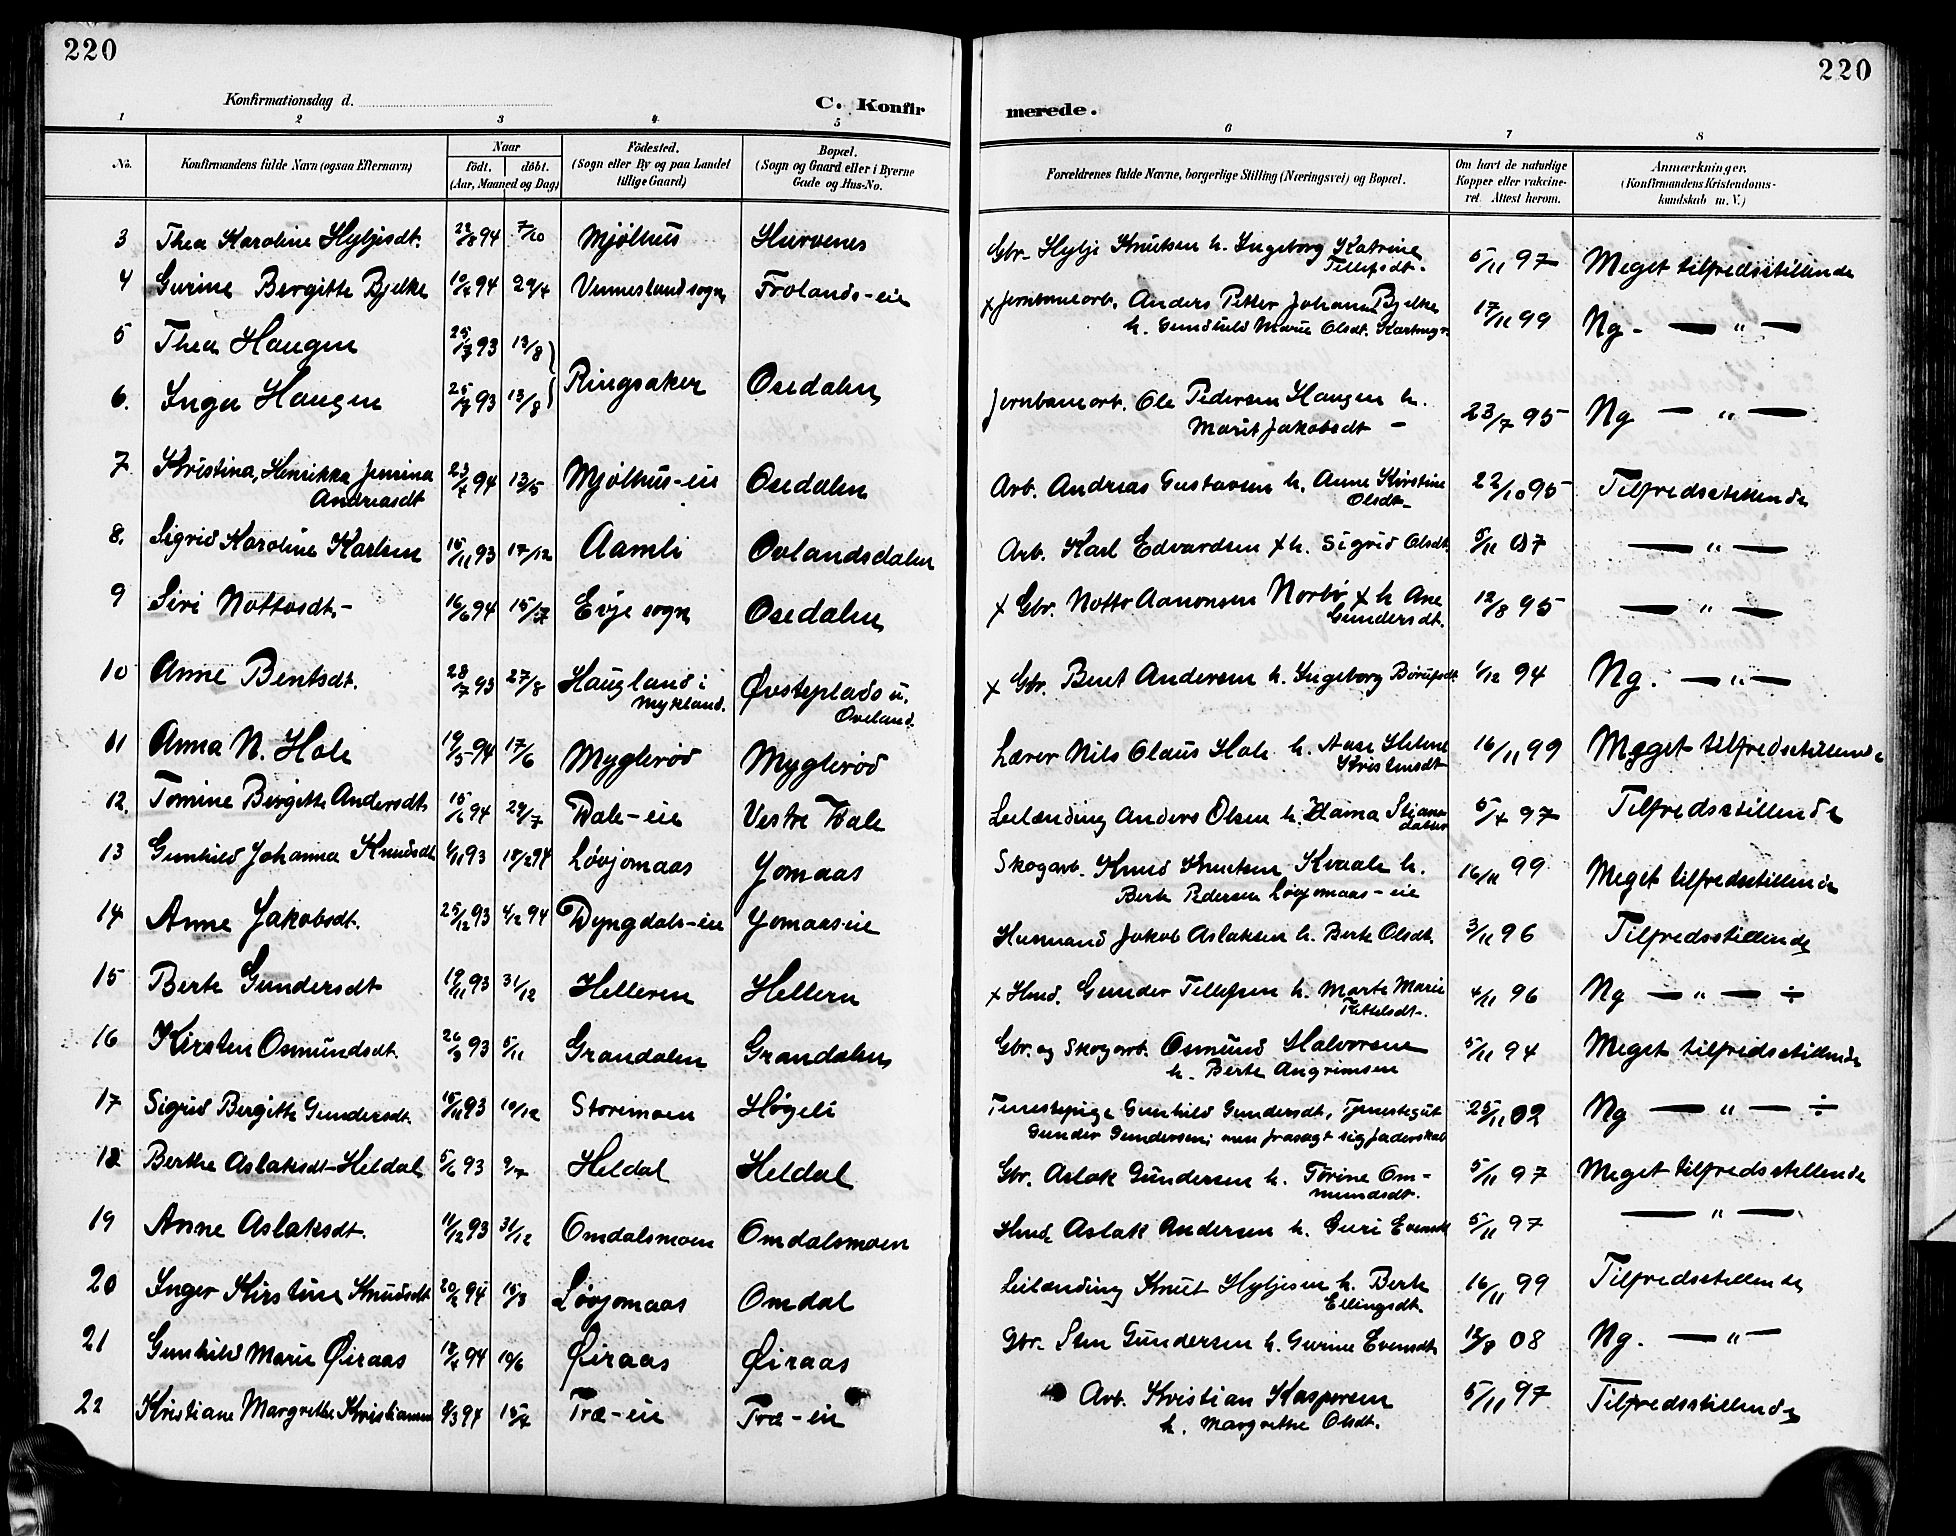 220
220
Konfirmationsdag d.
C. Konfir
merede.
1 2 3 4 5 6 7 8
No.
Konfirmandens fulde Navn (ogsaa Efternavn)
Naar
født, døbt.
(Aar, Maaned og Dag)
Fødested.
(Sogn eller By og paa Landet
tillige Gaard)
Bopæl.
(Sogn og Gaard eller i Byerne
Gade og Hus-No.
Forældrenes fulde Navne, borgerlige Stilling (Næringsvei) og Bopæl.
Om havt de naturlige
Kopper eller vakcine-
ret. Attest herom.
Anmærkninger.
(Konfirmandens Kristendoms-
kundskab m. V.)
3 Thea Karoline Hyljesdt. 94 7/10 Mjølhus Hurvenes Gbr. Hylje Knutsen h. Ingeborg Katrine 5/11 97 Meget tilfredsstillende
Tellefsdt.
4 Gurine Bergitte Bjelke 94 29/4 Venneslandsogn Frolands-eie x Jernbanearb. Anders Petter Johann Bjelke 17/11 99 Ng - — " —
h. Gundhild Marie Olsdt.
5 Thea Haugen 93 13/8
6. Inga Haugen 93 13/8 Ringsaker Osedalen Jernbanearb. Ole Pedersen Haugen h. 23/7 95 Ng — " —
Marit Jakobsdt —
7 Kristina, Henrikka Jensina 23/4 94 13/5 Mjølhus-eie Osedalen Arb. Andreas Gustavsen h. Anne Kirstine 22/10 95 Tilfredsstillende
Andreasdt
Olsdt-
8. Sigrid Karoline Karlsen 15/11 93 17/12 Aamli Ovlandsdalen Arb. Karl Edvardsen x h. Sigrid Olsdt. 5/11 07 — " —
9 Siri Nottosdt- 16/6 94 15/7 Evje sogn Osedalen x Gbr. Notto Aanonsen Norbø x h Ane 12/8 95 — " —
Gundersdt.
10 Anne Bentsdt. 28/7 93 27/8 Haugland i Øvsteplads u. x Gbr. Bent Andersen h. Ingeborg Børufsdt 1/12 94 Ng. — " —
Mykland.
Oveland.
11 Anna N. Hole 19/5 94 17/6 Myglerød Myglerød Lærer Nils Olaus Hole h. Aase Helene 16/11 99 Meget tilfredsstillende
Kristensdt
12. Tomine Birgitte Andersdt. 94 29/7 Dale-eie Vestre Dale Leilænding Anders Olsen h. Hanna Stians 97 Tilfredsstillende
datter
13 Gunhild Johanna Knudsdt 93 18/2 94 Løvjomaas Jomaas Skogarb. Knud Knutsen Kvaale h. 16/11 99 Meget tilfredsstillende
Berte Pedersen Løvjomaas-eie
14 Anne Jakobsdt. 25/12 93 4/12 94 Dyngdals-eie Jomaas-eie Husmand Jakob Aslaksen h. Berte Olsdt. 3/11 96 Tilfredsstillende
15 Berte Gundersdt 19/11 93 31/12 Helleren Hellern x Hmd. Gunder Tellefsen h. Marte Marie 4/11 96 Ng — " — ÷
Kittelsdt-.
16 Kirsten Osmundsdt. 26/9 93 5/11 Grandalen Grandalen Gbr. og Skogarb. Osmund Halvorsen 5/11 94 Meget tilfredsstillende
h. Berte Angrimsen
17 Sigrid Bergitte Gundersdt. 15/11 93 10/12 Storemoen Høgeli Tenestepige Gunhild Gundersdt, Tjenestegut 25/11 02 Ng — " — ÷
Gunder Gundersen; men frasagt sig faderskab
18 Berthe Aslaksdt-Heldal 5/6 93 9/7 Heldal Heldal Gbr. Aslak Gundersen h. Torine Om- 5/11 97 Meget tilfredsstillende
mundsdt.
19 Anne Aslaksdt. 11/12 93 31/12 Omdalsmoen Omdalsmoen Hmd Aslak Andersen h. Guri Evensdt 5/11 97 — " —
20 Inger Kirstine Knudsdt 94 Løvjomaas Omdal Leilænding Knut Hyljesen h. Berte 16/11 99 Tilfredsstillende
Ellingsdt.
21 Gunhild Marie Øiraas 94 10/6 Øiraas Øiraas Gbr. Sten Gundersen h. Gurine Evensdt 08 Ng. — " —
22 Kristiane Margrethe Kristiansen 94 Træ-eie Træ-eie Arb. Kristian Kaspersen 5/11 97 Tilfredsstillende
h. Margrethe Olsdt.